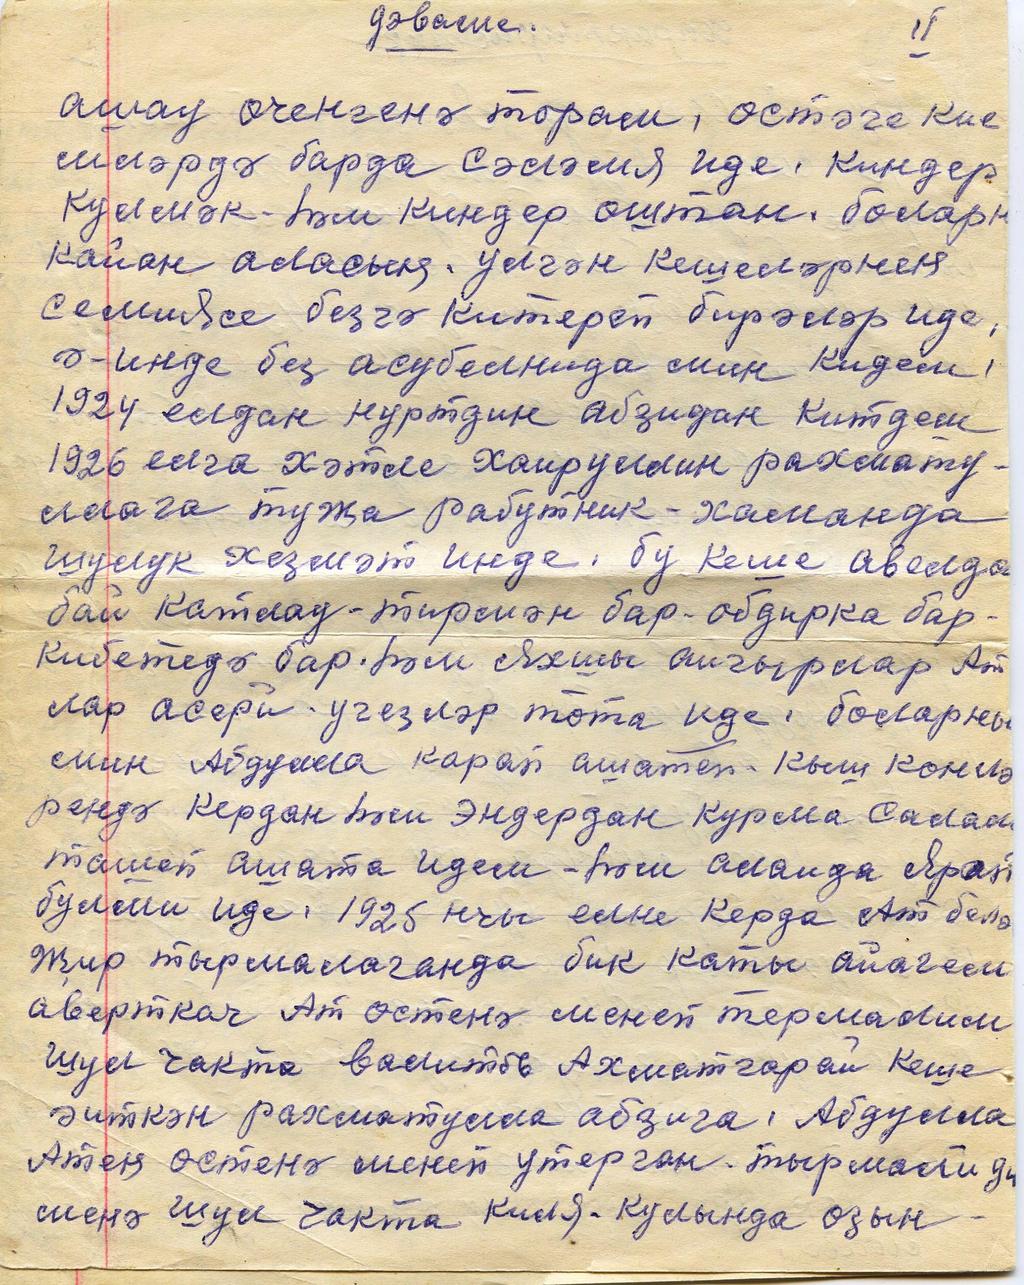 дәваме.
II
ашау өченгенә торам, өстәге кие
мнәрдә барда сәләмя иде, киндер
күлмәк - һәм киндер оштан. боларн
кайан аласың. үлгән кешеләрнең
семиясе безгә китереп бирәләр иде,
ә-инде без асубелнида мин кидем,
1924 елдан нуртдин абзидан китдем
1926 елга хәтле хаируллин рахмату-
ллага тужа работник - хаманда
шулук хезмәт инде, бу кеше авелда
бай катлау - тирмән бар - обдирка бар -
кибетедә бар. һәм яхшы айгырлар Ат
лар асери. үгезләр тота иде, боларны
мин Абдулла карап ашатеп. кыш көнлә
рендә кердан һәм эндердан курма салам
ташеп ашата идем - һәм аланда ярап
булми иде, 1925 нчы елне керда Ат белә
жир тырмалаганда бик каты айагем
аверткач Ат өстенә менеп термалим
шул чакта валитов Ахматгарай кеше
әиткән рахматулла абзига, Абдулла
Атең өстенә менеп утерган. тырмали ди
менә шул чакта киля. кулында озын -